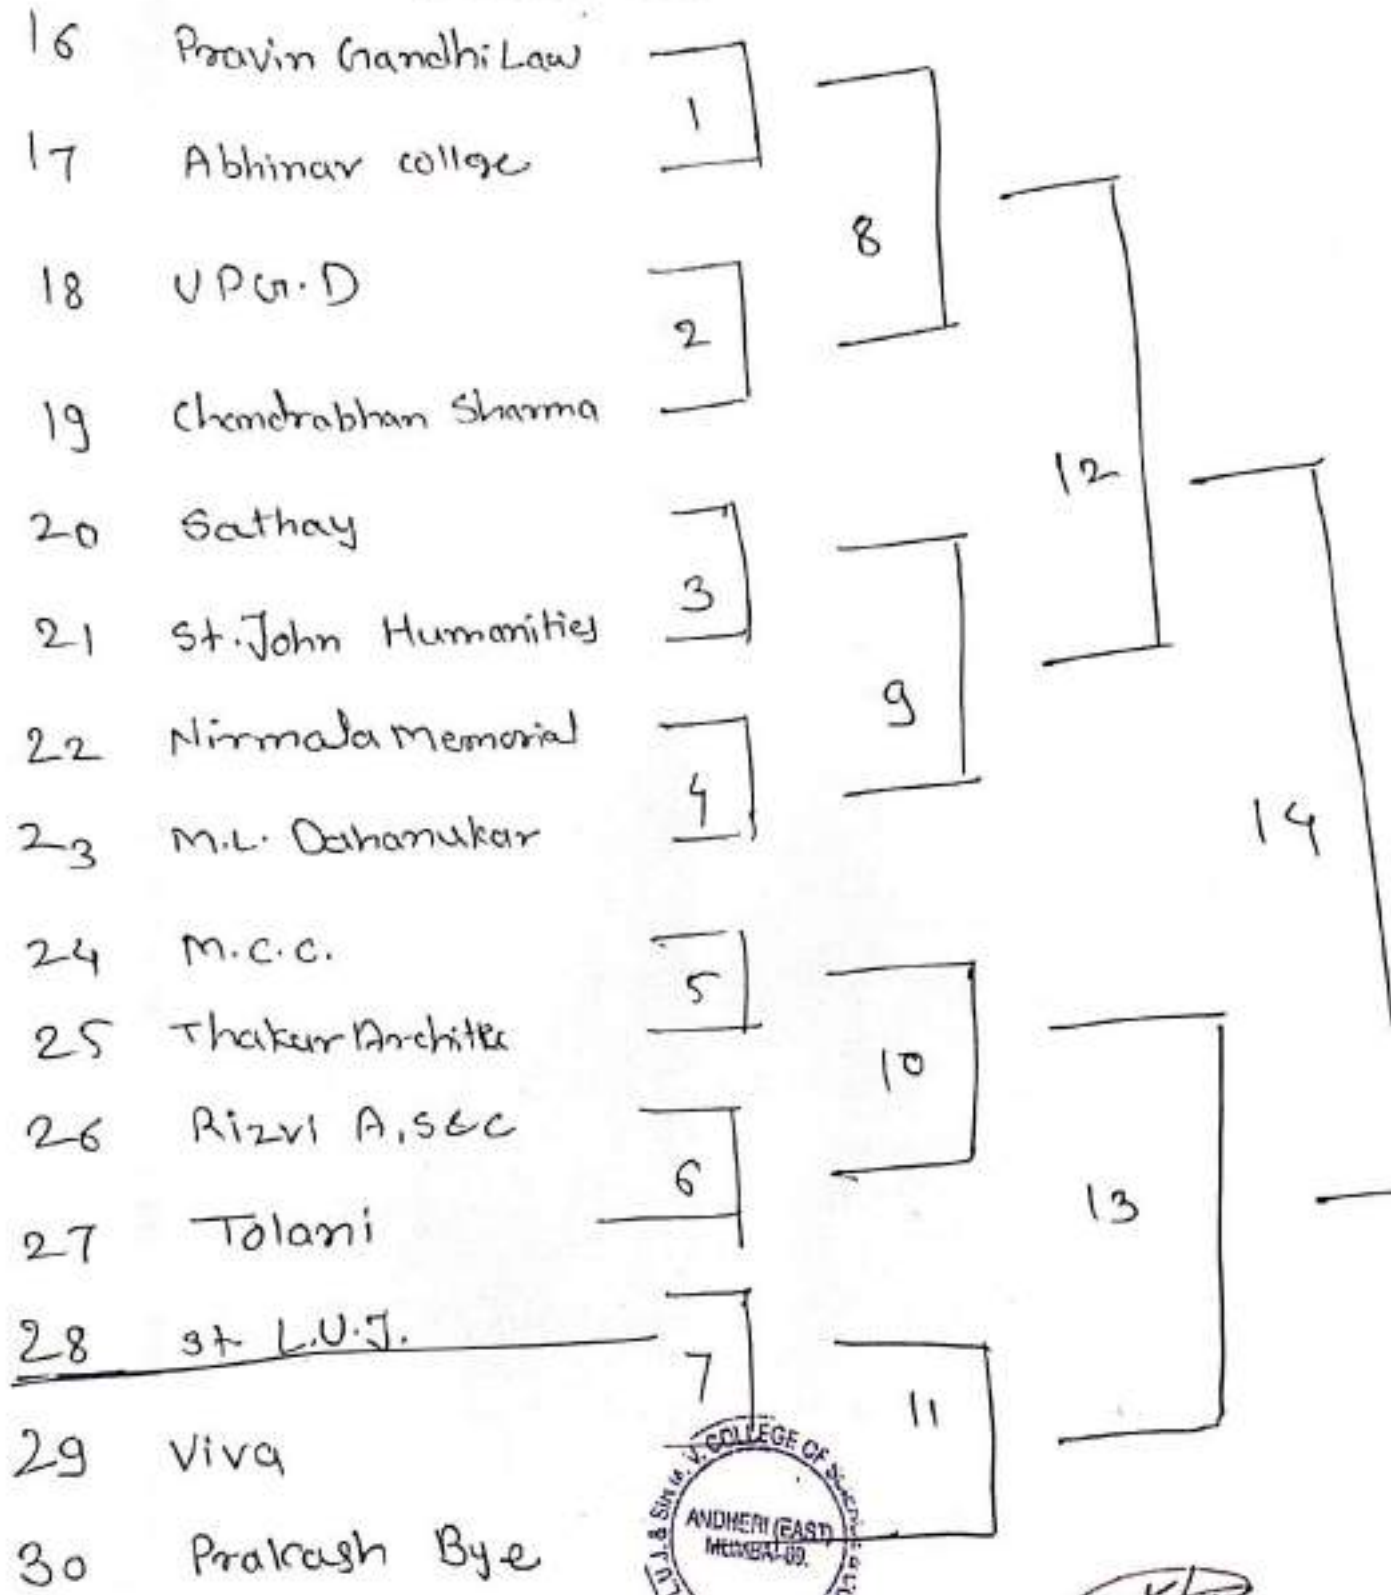 16 Pravin Gandhi Law
1
17 Abhinav collge
8
18 UPG.D
2
19 Chandrabhan Sharma
12
20 Sathay
3
21 St. John Humanities
9
22 Nirmala Memorial
4
23 M.L. Dahanukar
14
24 M.C.C.
5
25 Thakur Archite
10
26 Rizvi A, S&C
6
27 Tolani
13
28 st L.U.J.
7
11
29 Viva
30 Prakash Bye
L.U.J. & Sir M.V. COLLEGE OF
ANDHERI (EAST)
MUMBAI-69.